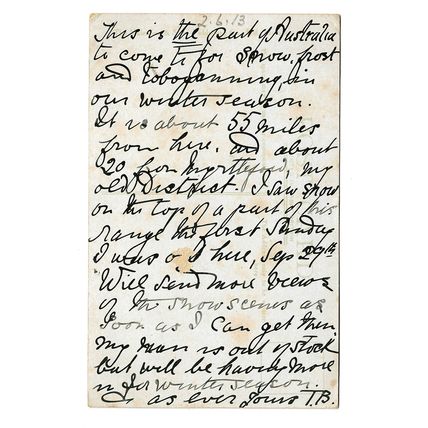 2.6.13
This is the part of Australia
to come to for snow, frost
and toboganning, in
our winter season.
It is about 55 miles
from here, and about
20 from Myrtleford, my
old District. I saw snow
on the top of a part of this
range the first Sunday
I was out here, Sep 29th
Will send more views
of the snow scenes as
soon as I can get them
my man is out of stock
but will be having more
in for winter season.
as ever yours T.B.